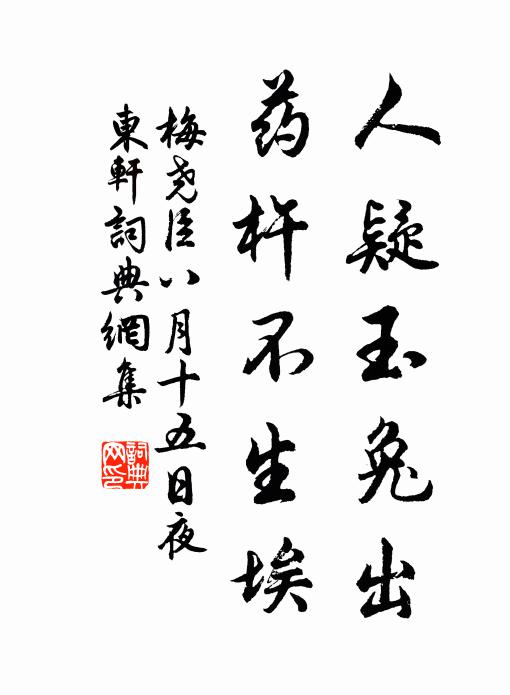 人疑玉兔出
药杵不生埃
梅尧臣八月十五日夜
東軒詞典網集
詞典
网印